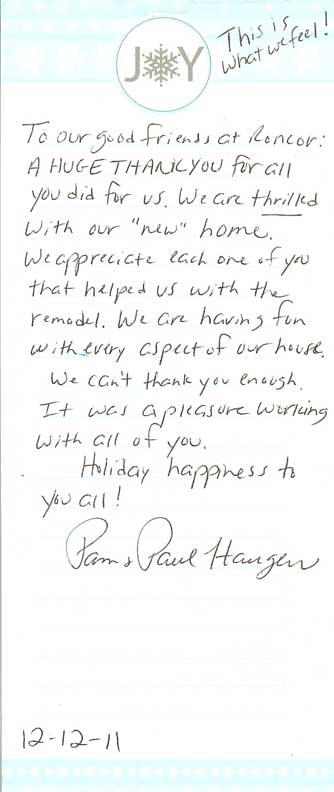 JOY
This is
what we feel!
To our good friends at Roncor:
A HUGE THANK YOU for all
you did for us. We are thrilled
with our "new" home.
We appreciate each one of you
that helped us with the
remodel. We are having fun
with every aspect of our house.
We can't thank you enough.
It was a pleasure working
with all of you.
Holiday happiness to
you all!
Pam & Paul Haugen
12-12-11